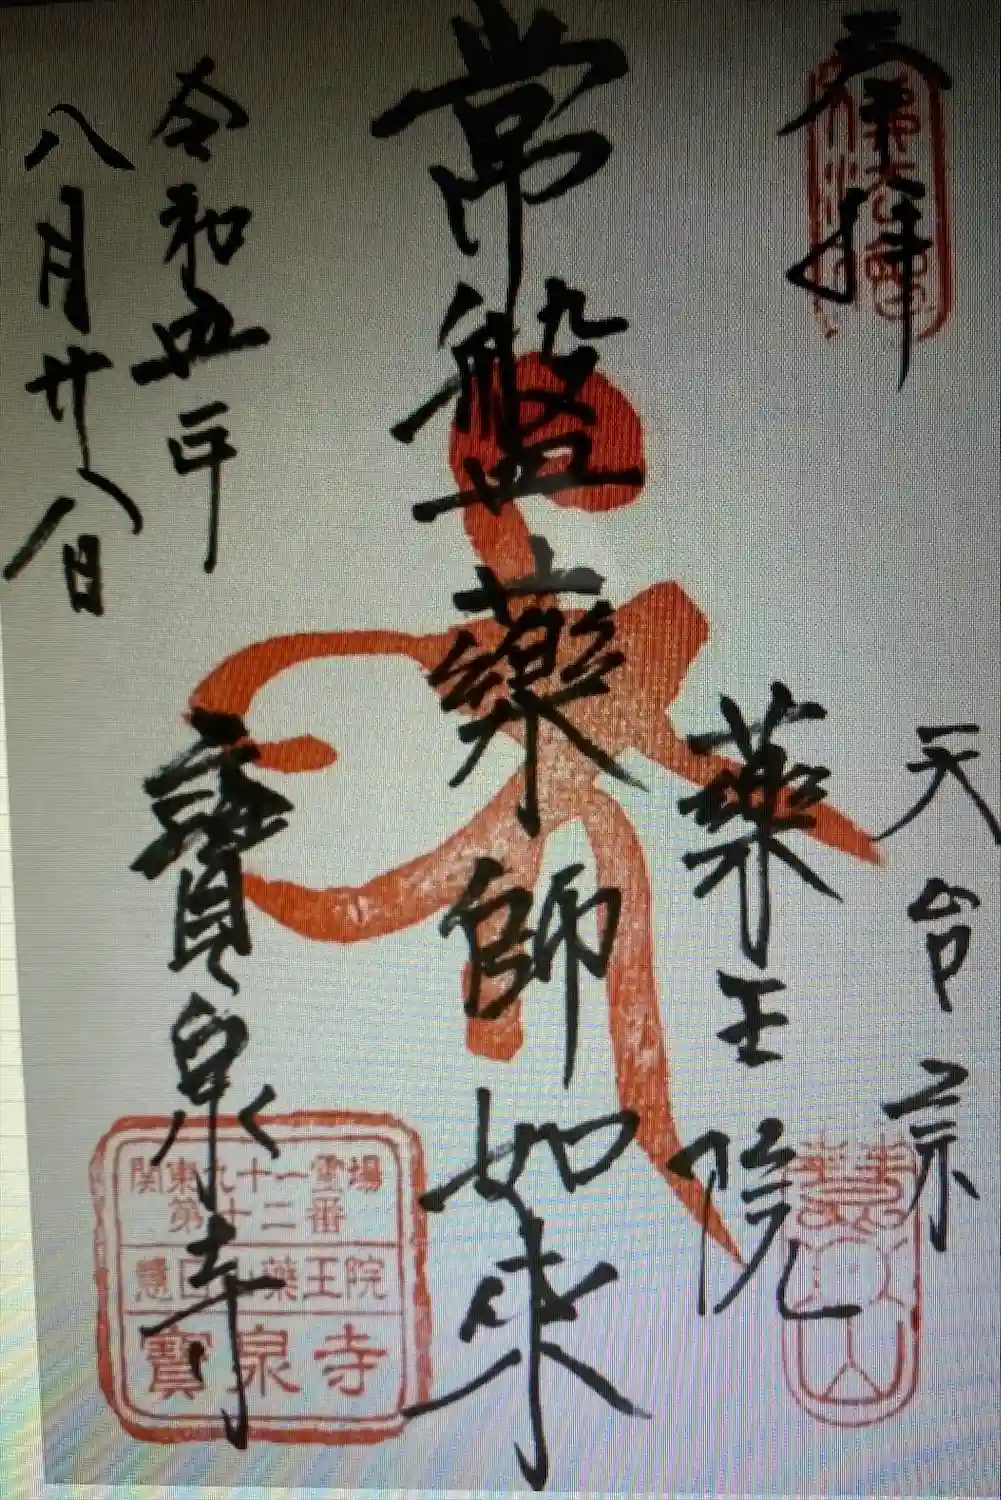 奉拝
天台宗
薬王院
常盤薬師如来
寳泉寺
令和四年
八月廿八日
関東九十一霊場
第十二番
薬王院
寳泉寺